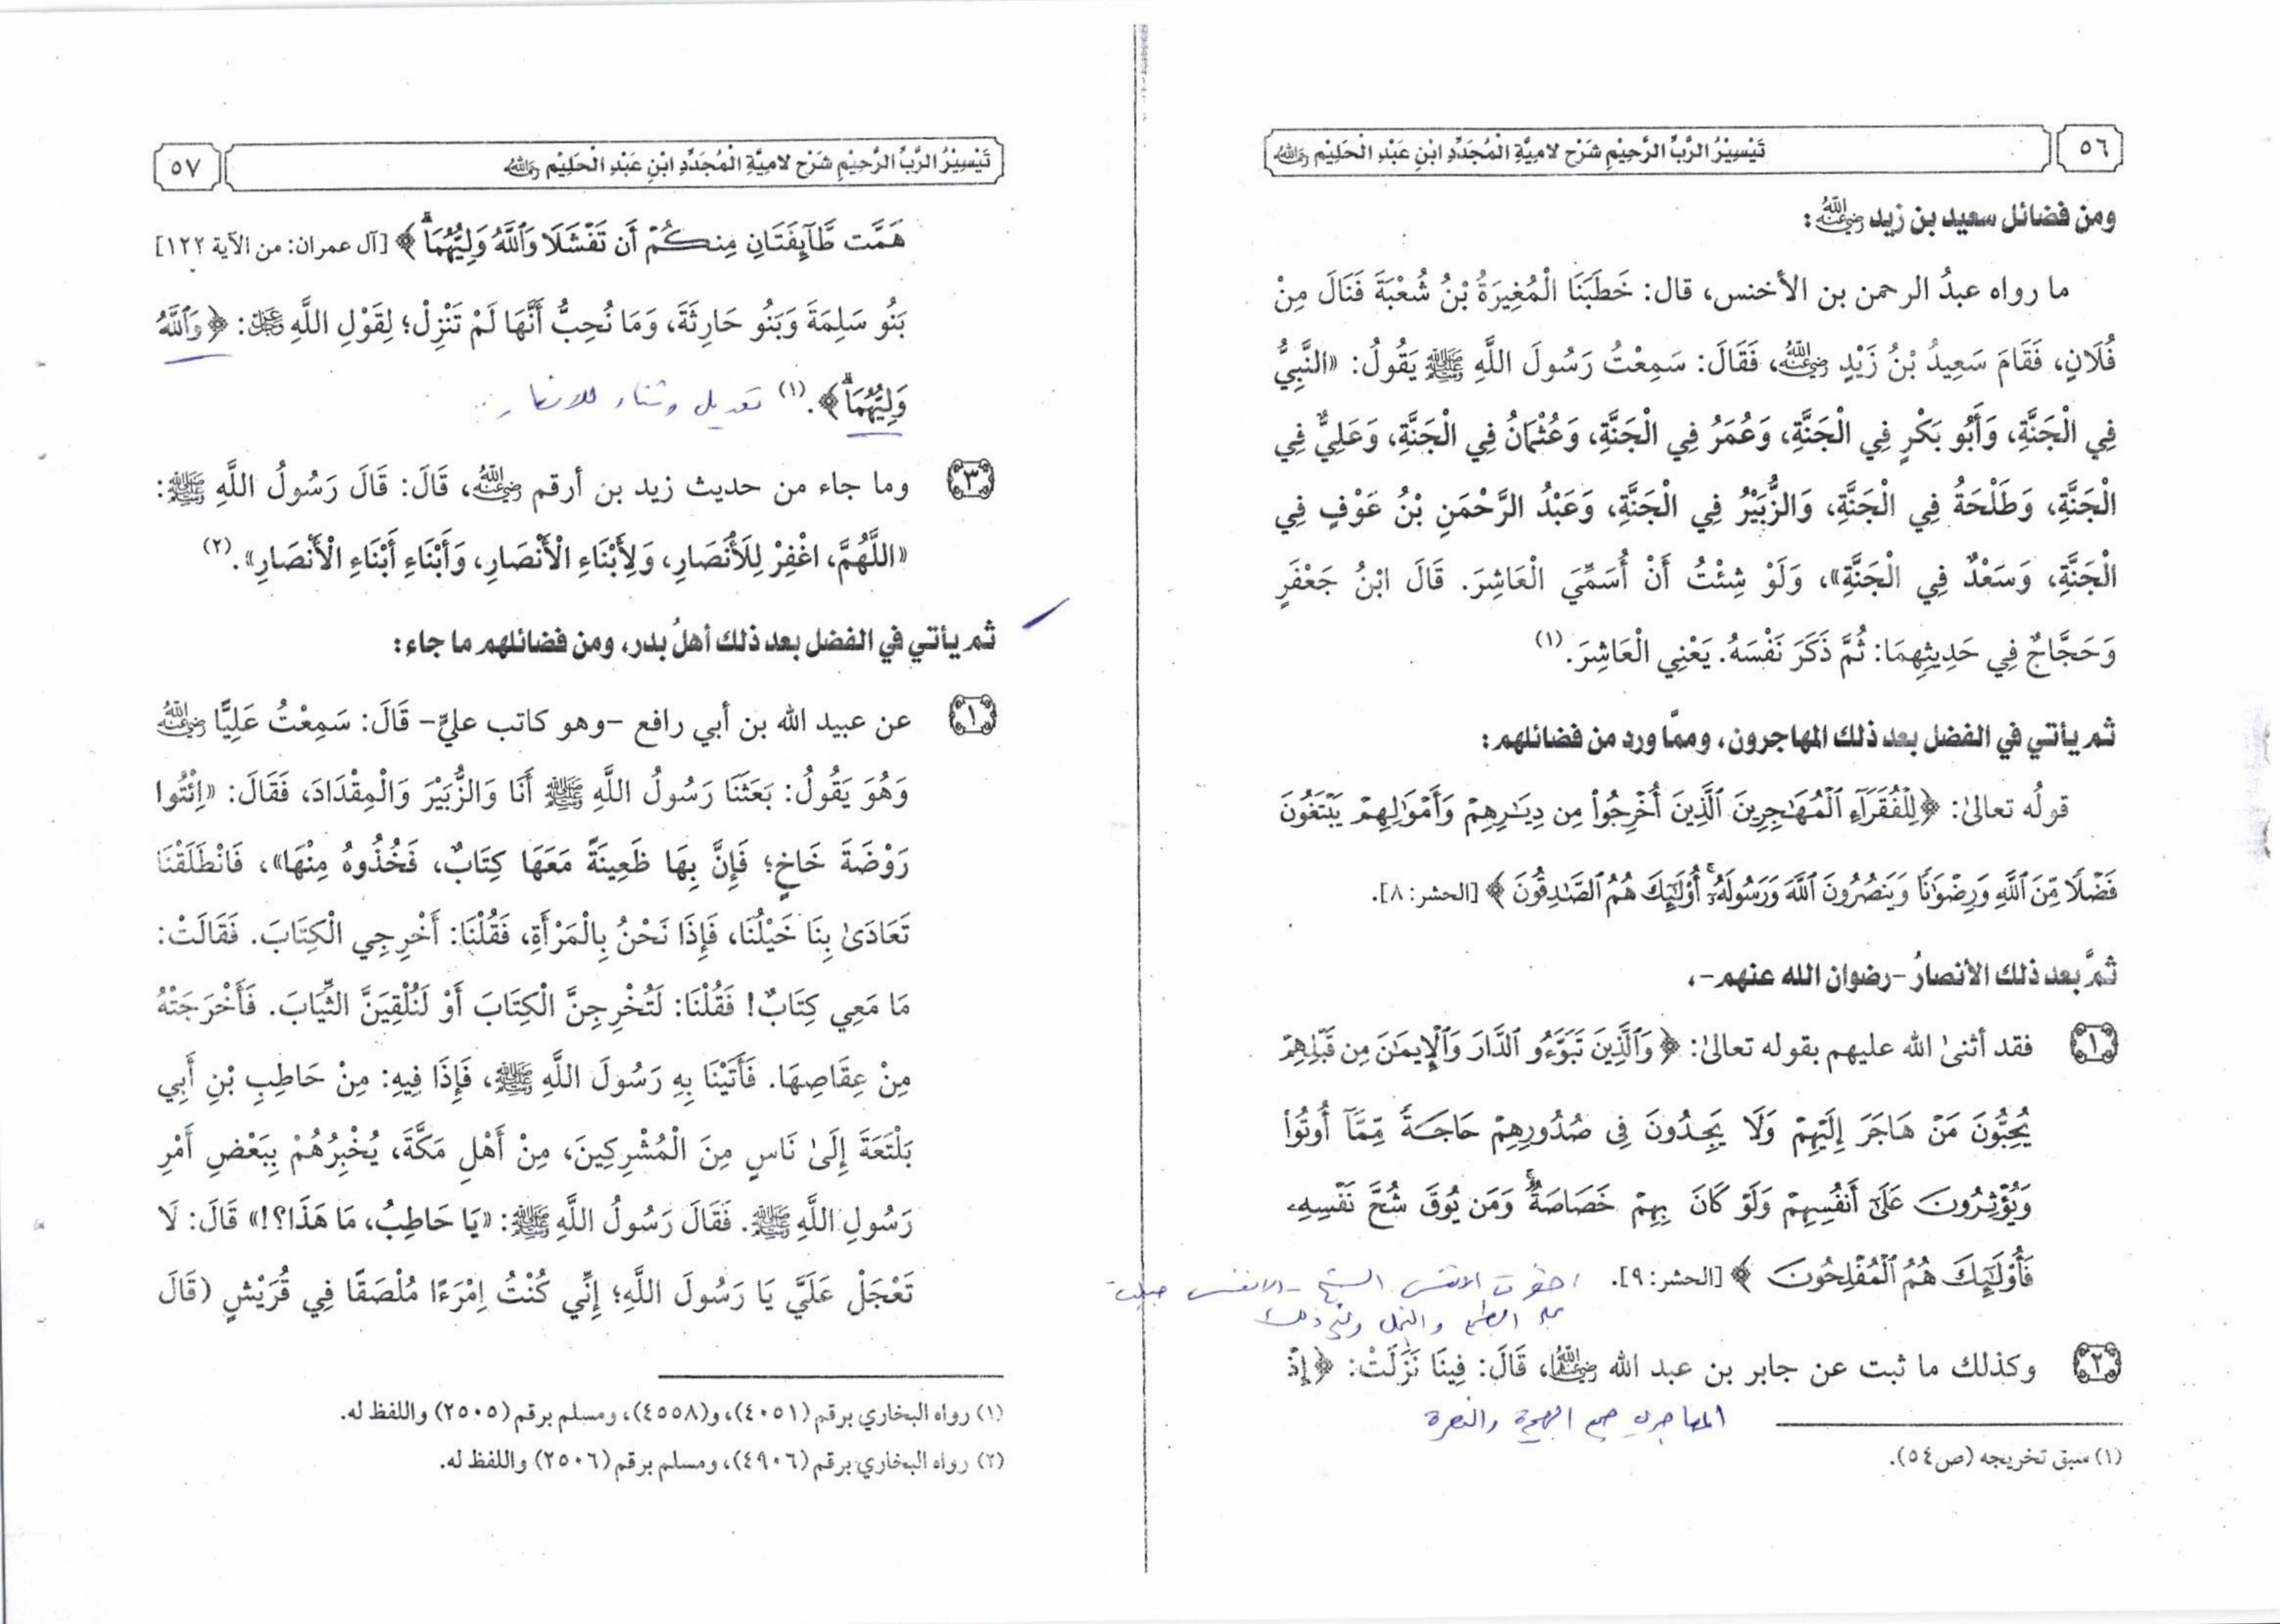 ٥٦
تَيْسِيْرُ الرَّبِّ الرَّحِيْمِ شَرْح لامِيَّةِ الْمُجَدِّدِ ابْنِ عَبْدِ الْحَلِيْمِ رحمه الله
ومن فضائل سعيد بن زيد رضي الله عنه:
ما رواه عبدُ الرحمن بن الأخنس، قال: خَطَبَنَا الْمُغِيرَةُ بْنُ شُعْبَةَ فَنَالَ مِنْ
فُلَانٍ، فَقَامَ سَعِيدُ بْنُ زَيْدٍ رضي الله عنه، فَقَالَ: سَمِعْتُ رَسُولَ اللَّهِ ﷺ يَقُولُ: «النَّبِيُّ
فِي الْجَنَّةِ، وَأَبُو بَكْرٍ فِي الْجَنَّةِ، وَعُمَرُ فِي الْجَنَّةِ، وَعُثْمَانُ فِي الْجَنَّةِ، وَعَلِيٌّ فِي
الْجَنَّةِ، وَطَلْحَةُ فِي الْجَنَّةِ، وَالزُّبَيْرُ فِي الْجَنَّةِ، وَعَبْدُ الرَّحْمَنِ بْنُ عَوْفٍ فِي
الْجَنَّةِ، وَسَعْدٌ فِي الْجَنَّةِ»، وَلَوْ شِئْتُ أَنْ أُسَمِّيَ الْعَاشِرَ. قَالَ ابْنُ جَعْفَرٍ
وَحَجَّاجٌ فِي حَدِيثِهِمَا: ثُمَّ ذَكَرَ نَفْسَهُ. يَعْنِي الْعَاشِرَ.(١)
ثم يأتي في الفضل بعد ذلك المهاجرون، وممّا ورد من فضائلهم:
قولُه تعالىٰ: ﴿لِلْفُقَرَآءِ ٱلْمُهَٰجِرِينَ ٱلَّذِينَ أُخْرِجُوا۟ مِن دِيَٰرِهِمْ وَأَمْوَٰلِهِمْ يَبْتَغُونَ
فَضْلًا مِّنَ ٱللَّهِ وَرِضْوَٰنًا وَيَنصُرُونَ ٱللَّهَ وَرَسُولَهُۥٓ ۚ أُو۟لَٰٓئِكَ هُمُ ٱلصَّٰدِقُونَ﴾ [الحشر: ٨].
ثمَّ بعد ذلك الأنصارُ -رضوان الله عنهم-،
١ فقد أثنىٰ الله عليهم بقوله تعالىٰ: ﴿وَٱلَّذِينَ تَبَوَّءُو ٱلدَّارَ وَٱلْإِيمَٰنَ مِن قَبْلِهِمْ
يُحِبُّونَ مَنْ هَاجَرَ إِلَيْهِمْ وَلَا يَجِدُونَ فِى صُدُورِهِمْ حَاجَةً مِّمَّآ أُوتُوا۟
وَيُؤْثِرُونَ عَلَىٰٓ أَنفُسِهِمْ وَلَوْ كَانَ بِهِمْ خَصَاصَةٌ ۚ وَمَن يُوقَ شُحَّ نَفْسِهِۦ
فَأُو۟لَٰٓئِكَ هُمُ ٱلْمُفْلِحُونَ﴾ [الحشر: ٩]. الانفس الشح - الانفس جبلت
والبخل
٢ وكذلك ما ثبت عن جابر بن عبد الله رضي الله عنهما، قَالَ: فِينَا نَزَلَتْ: ﴿إِذْ
المهاجرين الهجرة والنصرة
(١) سبق تخريجه (ص٥٤).
٥٧
تَيْسِيْرُ الرَّبِّ الرَّحِيْمِ شَرْح لامِيَّةِ الْمُجَدِّدِ ابْنِ عَبْدِ الْحَلِيْمِ رحمه الله
هَمَّت طَّآئِفَتَانِ مِنكُمْ أَن تَفْشَلَا وَٱللَّهُ وَلِيُّهُمَا ۗ﴾ [آل عمران: من الآية ١٢٢]
بَنُو سَلِمَةَ وَبَنُو حَارِثَةَ، وَمَا نُحِبُّ أَنَّهَا لَمْ تَنْزِلْ؛ لِقَوْلِ اللَّهِ عز وجل: ﴿وَٱللَّهُ
وَلِيُّهُمَا ۗ﴾.(١) تعديل وثناء للانصار
٣ وما جاء من حديث زيد بن أرقم رضي الله عنه، قَالَ: قَالَ رَسُولُ اللَّهِ ﷺ:
«اللَّهُمَّ، اغْفِرْ لِلْأَنْصَارِ، وَلِأَبْنَاءِ الْأَنْصَارِ، وَأَبْنَاءِ أَبْنَاءِ الْأَنْصَارِ».(٢)
ثم يأتي في الفضل بعد ذلك أهلُ بدر، ومن فضائلهم ما جاء:
١ عن عبيد الله بن أبي رافع -وهو كاتب عليٍّ- قَالَ: سَمِعْتُ عَلِيًّا رضي الله عنه
وَهُوَ يَقُولُ: بَعَثَنَا رَسُولُ اللَّهِ ﷺ أَنَا وَالزُّبَيْرَ وَالْمِقْدَادَ، فَقَالَ: «اِئْتُوا
رَوْضَةَ خَاخٍ؛ فَإِنَّ بِهَا ظَعِينَةً مَعَهَا كِتَابٌ، فَخُذُوهُ مِنْهَا»، فَانْطَلَقْنَا
تَعَادَىٰ بِنَا خَيْلُنَا، فَإِذَا نَحْنُ بِالْمَرْأَةِ، فَقُلْنَا: أَخْرِجِي الْكِتَابَ. فَقَالَتْ:
مَا مَعِي كِتَابٌ! فَقُلْنَا: لَتُخْرِجِنَّ الْكِتَابَ أَوْ لَنُلْقِيَنَّ الثِّيَابَ. فَأَخْرَجَتْهُ
مِنْ عِقَاصِهَا. فَأَتَيْنَا بِهِ رَسُولَ اللَّهِ ﷺ، فَإِذَا فِيهِ: مِنْ حَاطِبِ بْنِ أَبِي
بَلْتَعَةَ إِلَىٰ نَاسٍ مِنَ الْمُشْرِكِينَ، مِنْ أَهْلِ مَكَّةَ، يُخْبِرُهُمْ بِبَعْضِ أَمْرِ
رَسُولِ اللَّهِ ﷺ. فَقَالَ رَسُولُ اللَّهِ ﷺ: «يَا حَاطِبُ، مَا هَذَا؟!» قَالَ: لَا
تَعْجَلْ عَلَيَّ يَا رَسُولَ اللَّهِ؛ إِنِّي كُنْتُ اِمْرَءًا مُلْصَقًا فِي قُرَيْشٍ (قَالَ
(١) رواه البخاري برقم (٤٠٥١)، و(٤٥٥٨)، ومسلم برقم (٢٥٠٥) واللفظ له.
(٢) رواه البخاري برقم (٤٩٠٦)، ومسلم برقم (٢٥٠٦) واللفظ له.